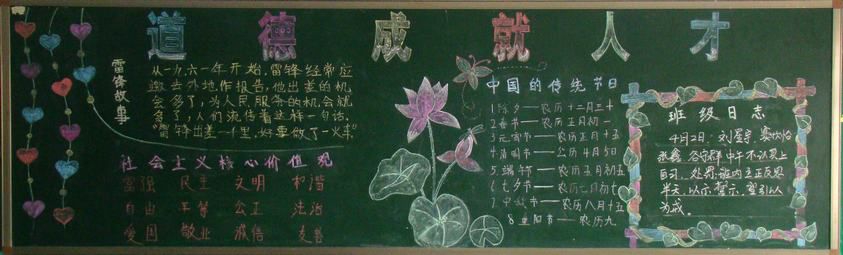 道德成就人才
雷锋故事
从一九六一年开始,雷锋经常应
邀去外地作报告,他出差的机
会多了,为人民服务的机会就
多了,人们流传着这样一句话:
"雷锋出差一千里,好事做了一火车"
社会主义核心价值观
富强 民主 文明 和谐
自由 平等 公正 法治
爱国 敬业 诚信 友善
中国的传统节日
1.除夕——农历十二月三十
2.春节——农历正月初一
3.元宵节——农历正月十五
4.清明节——公历4月5日
5.端午节——农历五月初五
6.七夕节——农历七月初七
7.中秋节——农历八月十五
8.重阳节——农历九
班级日志
4月2日:刘
中午不认真上
自习,处罚:班内立正反思
半天,以示警示,望引以
为戒。